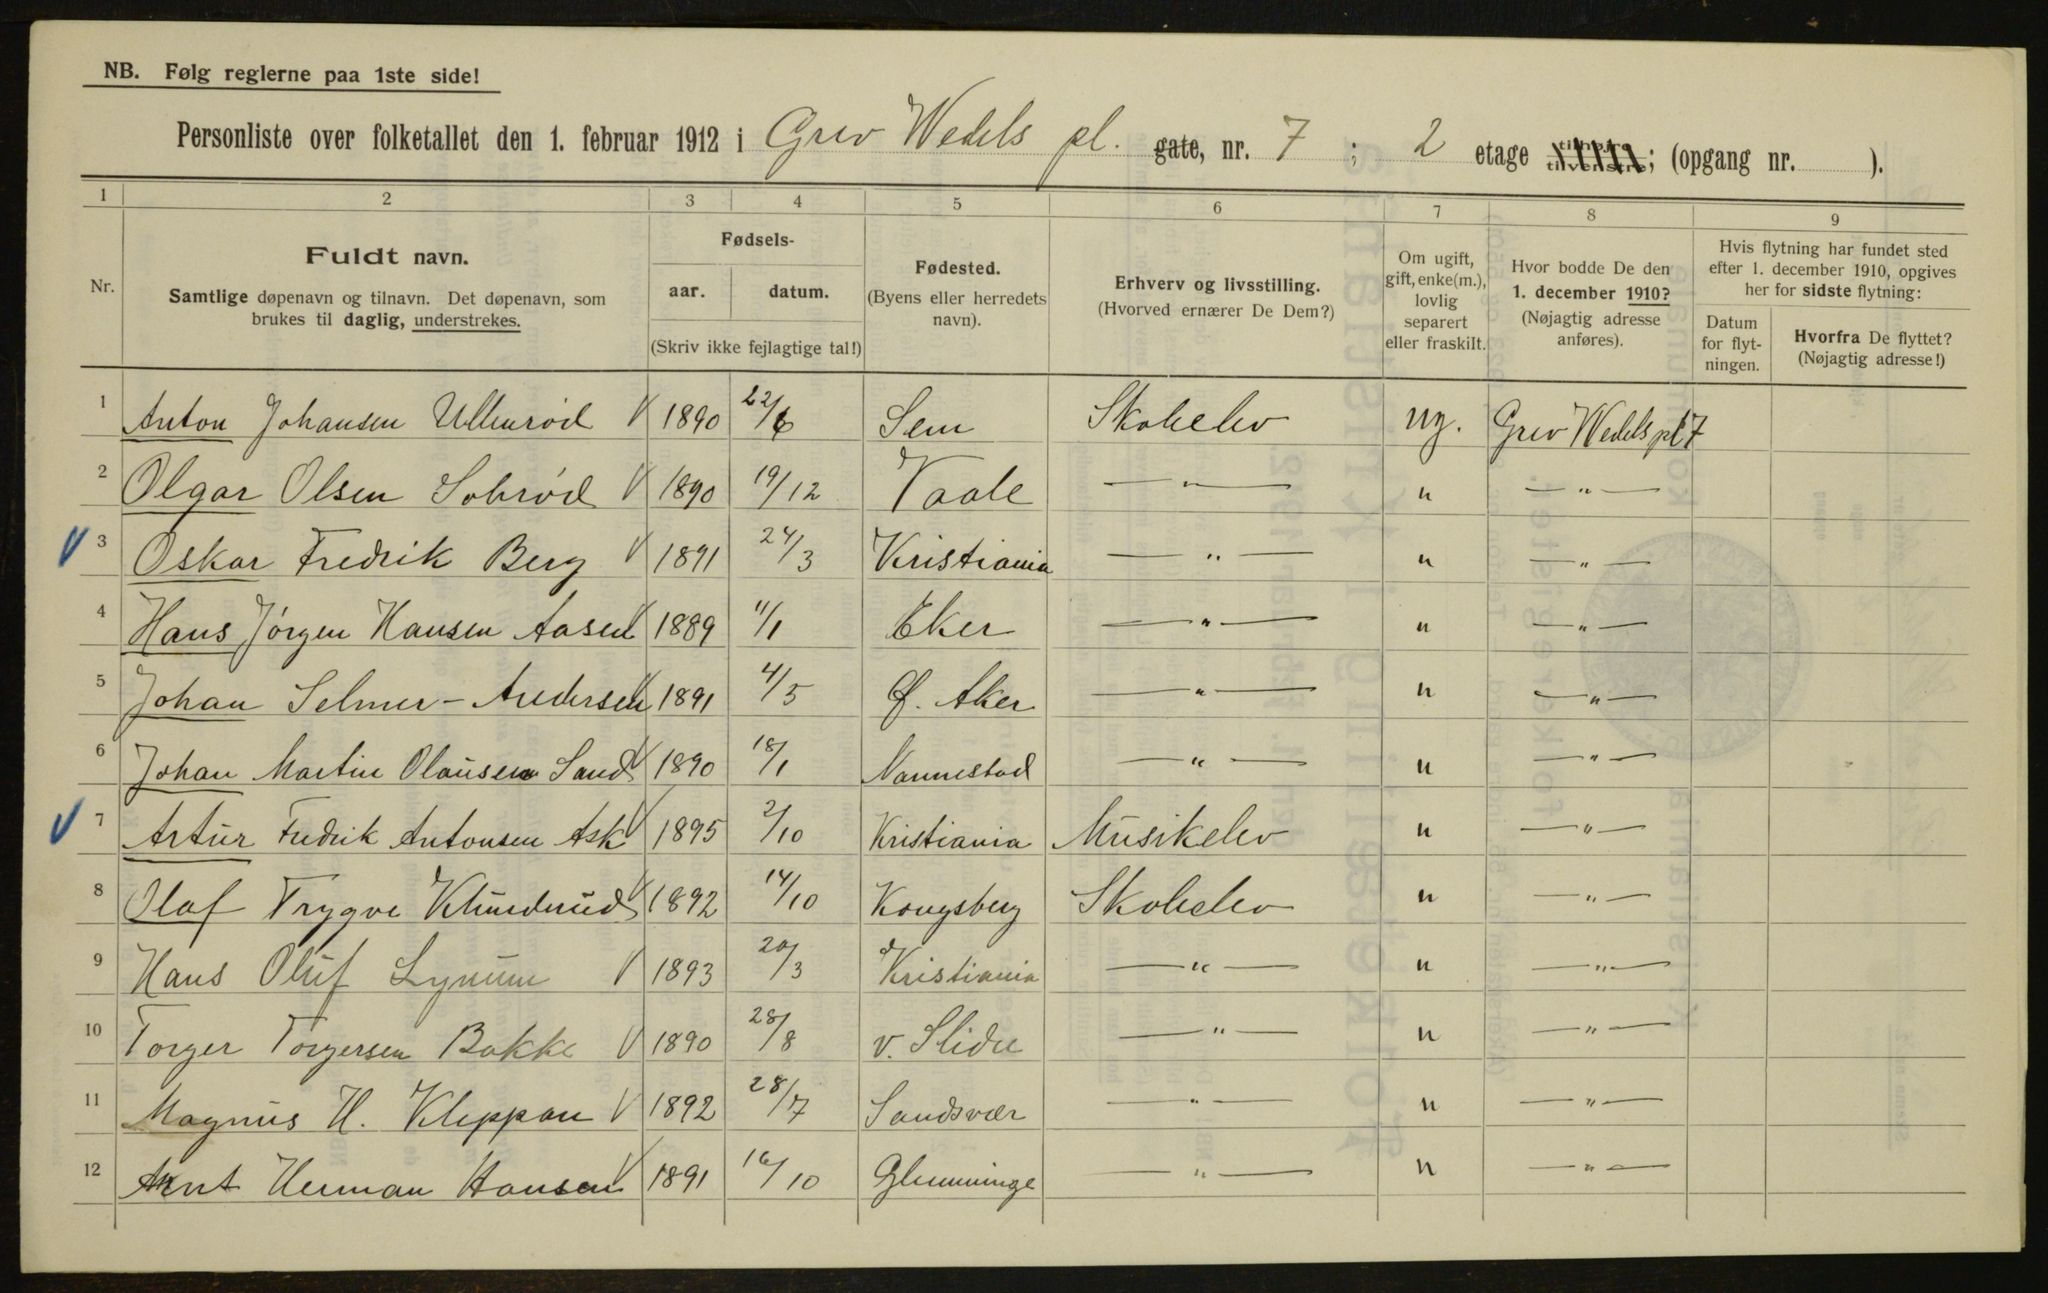 NB. Følg reglerne paa 1ste side!
Personliste over folketallet den 1. februar 1912 i Grev Wedels pl. gate, nr. 7 ; 2 etage tilhøjre tilvenstre; (opgang nr. ).
1 2 3 4 5 6 7 8 9
Nr.
Fuldt navn.
Samtlige døpenavn og tilnavn. Det døpenavn, som
brukes til daglig, understrekes.
Fødsels-
aar. datum.
(Skriv ikke fejlagtige tal!)
Fødested.
(Byens eller herredets
navn).
Erhverv og livsstilling.
(Hvorved ernærer De Dem?)
Om ugift,
gift, enke(m.),
lovlig
separert
eller fraskilt.
Hvor bodde De den
1. december 1910?
(Nøjagtig adresse
anføres).
Hvis flytning har fundet sted
efter 1. december 1910, opgives
her for sidste flytning:
Datum
for flyt-
ningen.
Hvorfra De flyttet?
(Nøjagtig adresse!)
1 Anton Johansen Ullenrød V 1890 22/6 Sem Skoelev ug. Grev Wedels pl 7
2 Olgar Olsen Solrød V 1890 19/12 Vaale — " — " — " —
V 3 Oskar Fredrik Berg V 1891 24/3 Kristiania — " — " — " —
4 Hans Jørgen Hansen Aasen V 1889 11/1 Eker — " — " — " —
5 Johan Selmer-Andersen V 1891 4/5 Ø. Aker — " — " — " —
6 Johan Martin Olausen Sand V 1890 18/1 Nannestad — " — " — " —
V 7 Artur Fredrik Antonsen Ask V 1895 2/10 Kristiania Musikelev " — " —
8 Olaf Trygve Klunderud V 1892 14/10 Kongsberg Skoelev " — " —
9 Hans Oluf Lynum V 1893 20/3 Kristiania — " — " — " —
10 Torger Torgersen Bakke V 1890 28/8 v. Slidre — " — " — " —
11 Magnus H. Kleppan V 1892 28/7 Sandsvær — " — " — " —
12 Arnt Herman Hansen V 1891 16/10 Glemminge — " — " — " —